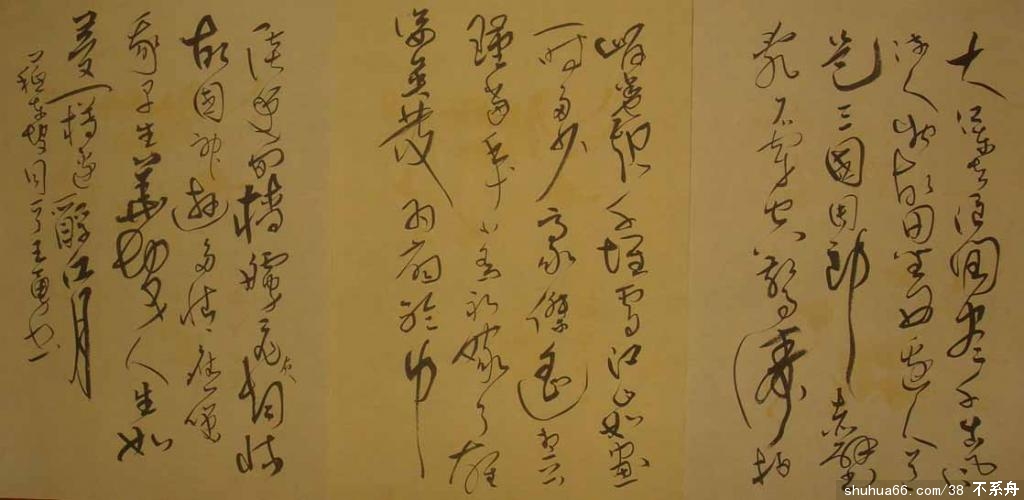 大江東去浪淘盡千古風
流人物故壘西邊人道
是三國周郎赤壁
亂石穿空驚濤拍
岸捲起千堆雪江山如畫
一時多少豪傑遙想公
瑾當年小喬初嫁了雄
姿英發羽扇綸巾
談笑間檣艣灰飛煙滅
故國神遊多情應笑
我早生華髮人生如
夢一樽還酹江月
蘇東坡詞王勇書
shuhua66.com/38 不系舟